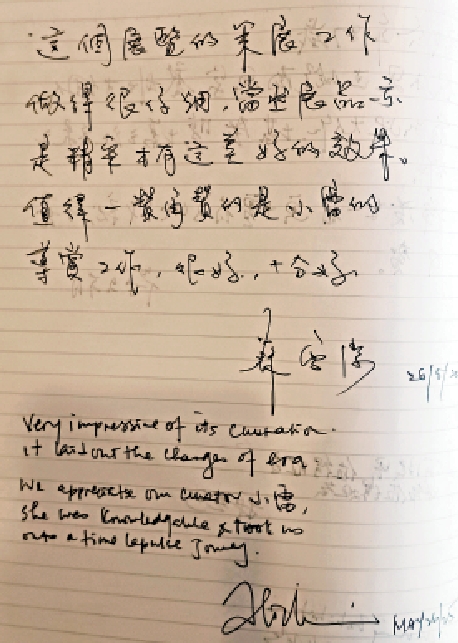 這個展覽的策展工作
做得很仔細，當然展品亦
是精采才有這麼好的效果。
值得一贊再贊的是小雷的
導賞工作，很好，十分好。
26/5/2
Very impressive of its curation.
it laid out the changes of era
We appreciate our curator 小雷,
she was knowledgable & took us
onto a time lapulse Journey.
MAY/26/25